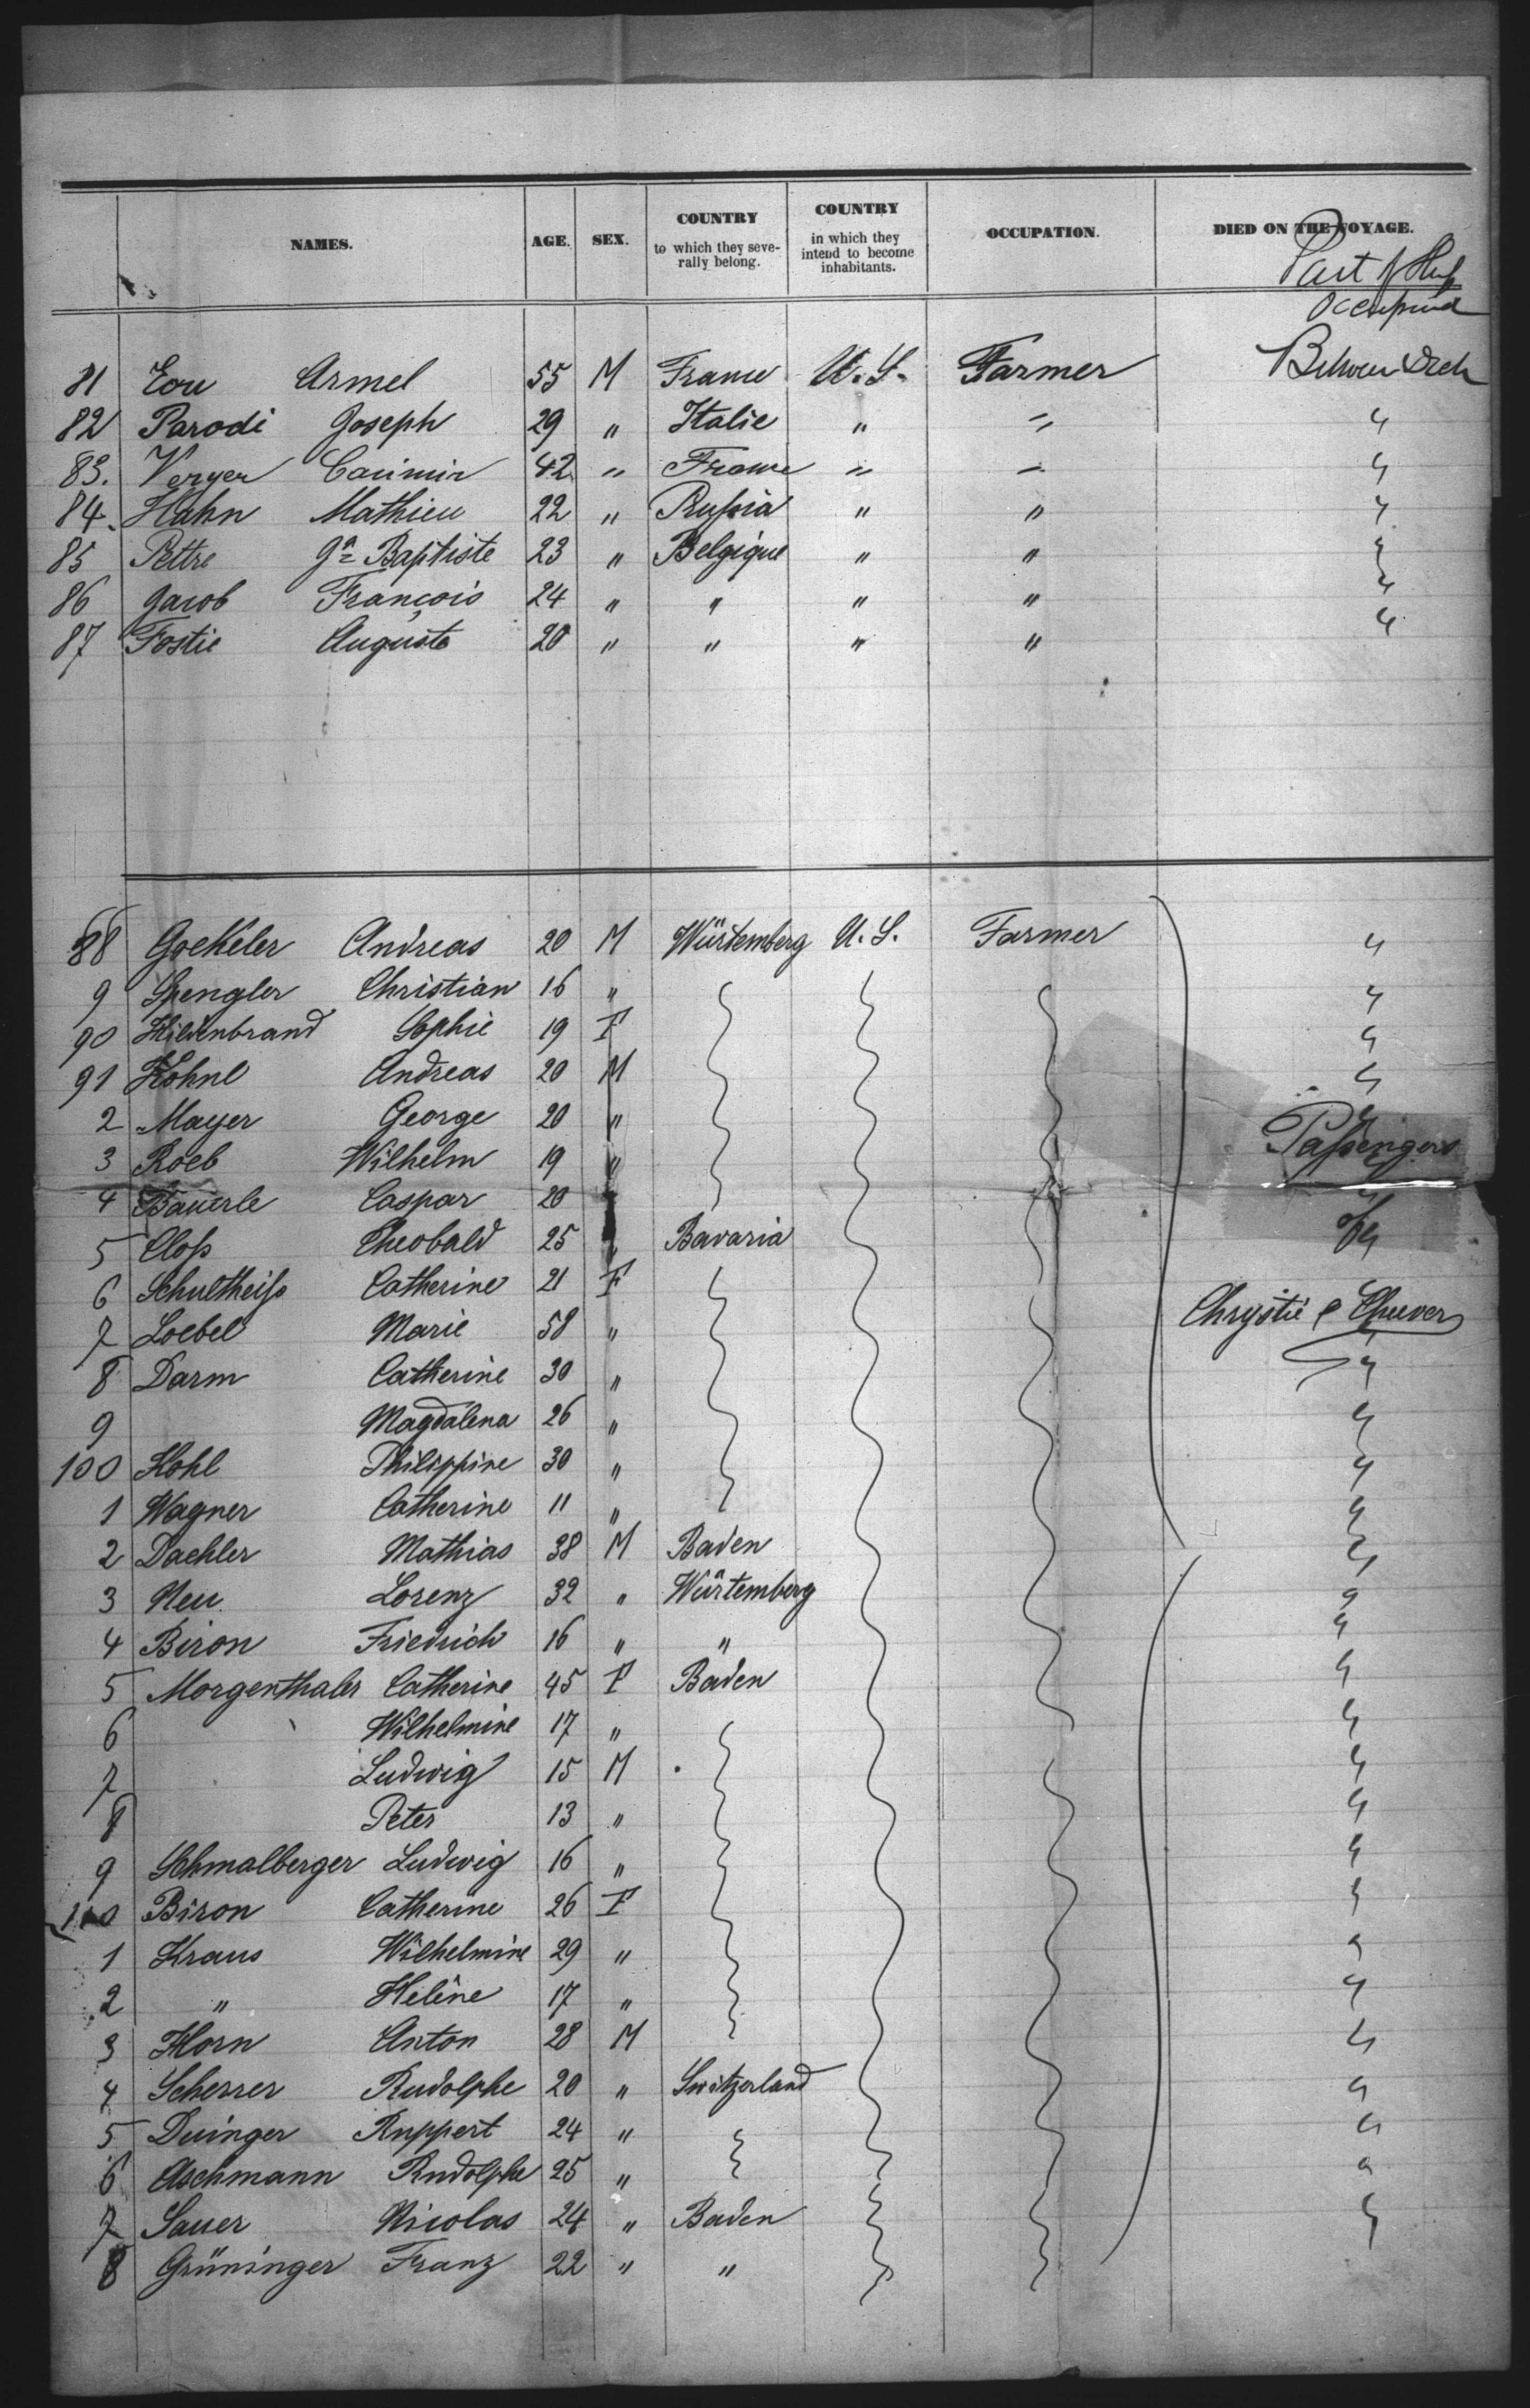 NAMES. AGE. SEX. COUNTRY to which they severally belong. COUNTRY in which they intend to become inhabitants. OCCUPATION. DIED ON THE VOYAGE.
Part of Ship
Occupied
81 Eou Armel 55 M France U.S. Farmer Between Deck
82 Parodi Joseph 29 " Italie " " "
83. Verger Casimir 42 " France " " "
84. Hahn Mathieu 22 " Prussia " " "
85 Pettre Jn Baptiste 23 " Belgique " " "
86 Jacob François 24 " " " " "
87 Fostie Auguste 20 " " " " "
88 Goekeler Andreas 20 M Würtemberg U.S. Farmer "
9 Spengler Christian 16 " "
90 Hildenbrand Sophie 19 F "
91 Hohnl Andreas 20 M "
2 Mayer George 20 " "
3 Roeb Wilhelm 19 " Passengers
4 Bauerle Caspar 20 "
5 Closs Theobald 25 " Bavaria of
6 Schultheiss Catherine 21 F
7 Loebel Marie 58 " Chrystie & Cheever
8 Darm Catherine 30 " "
9 Magdalena 26 " "
100 Kohl Philippine 30 " "
1 Wagner Catherine 11 " "
2 Daehler Mathias 38 M Baden "
3 Neu Lorenz 32 " Würtemberg "
4 Biron Friedrich 16 " " "
5 Morgenthaler Catherine 45 F Baden "
6 Wilhelmine 17 " "
7 Ludwig 15 M "
8 Peter 13 " "
9 Schmalberger Ludwig 16 " "
110 Biron Catherine 26 F "
1 Kraus Wilhelmine 29 " "
2 " Helène 17 " "
3 Horn Anton 28 M "
4 Scherrer Rudolphe 20 " Switzerland "
5 Duinger Ruppert 24 " "
6 Aschmann Rudolphe 25 " "
7 Sauer Nicolas 24 " Baden "
8 Grüninger Franz 22 " "